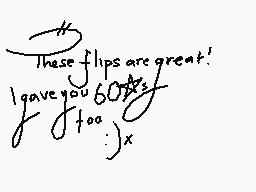 These flips are great!
I gave you 60☆s
too
:)x